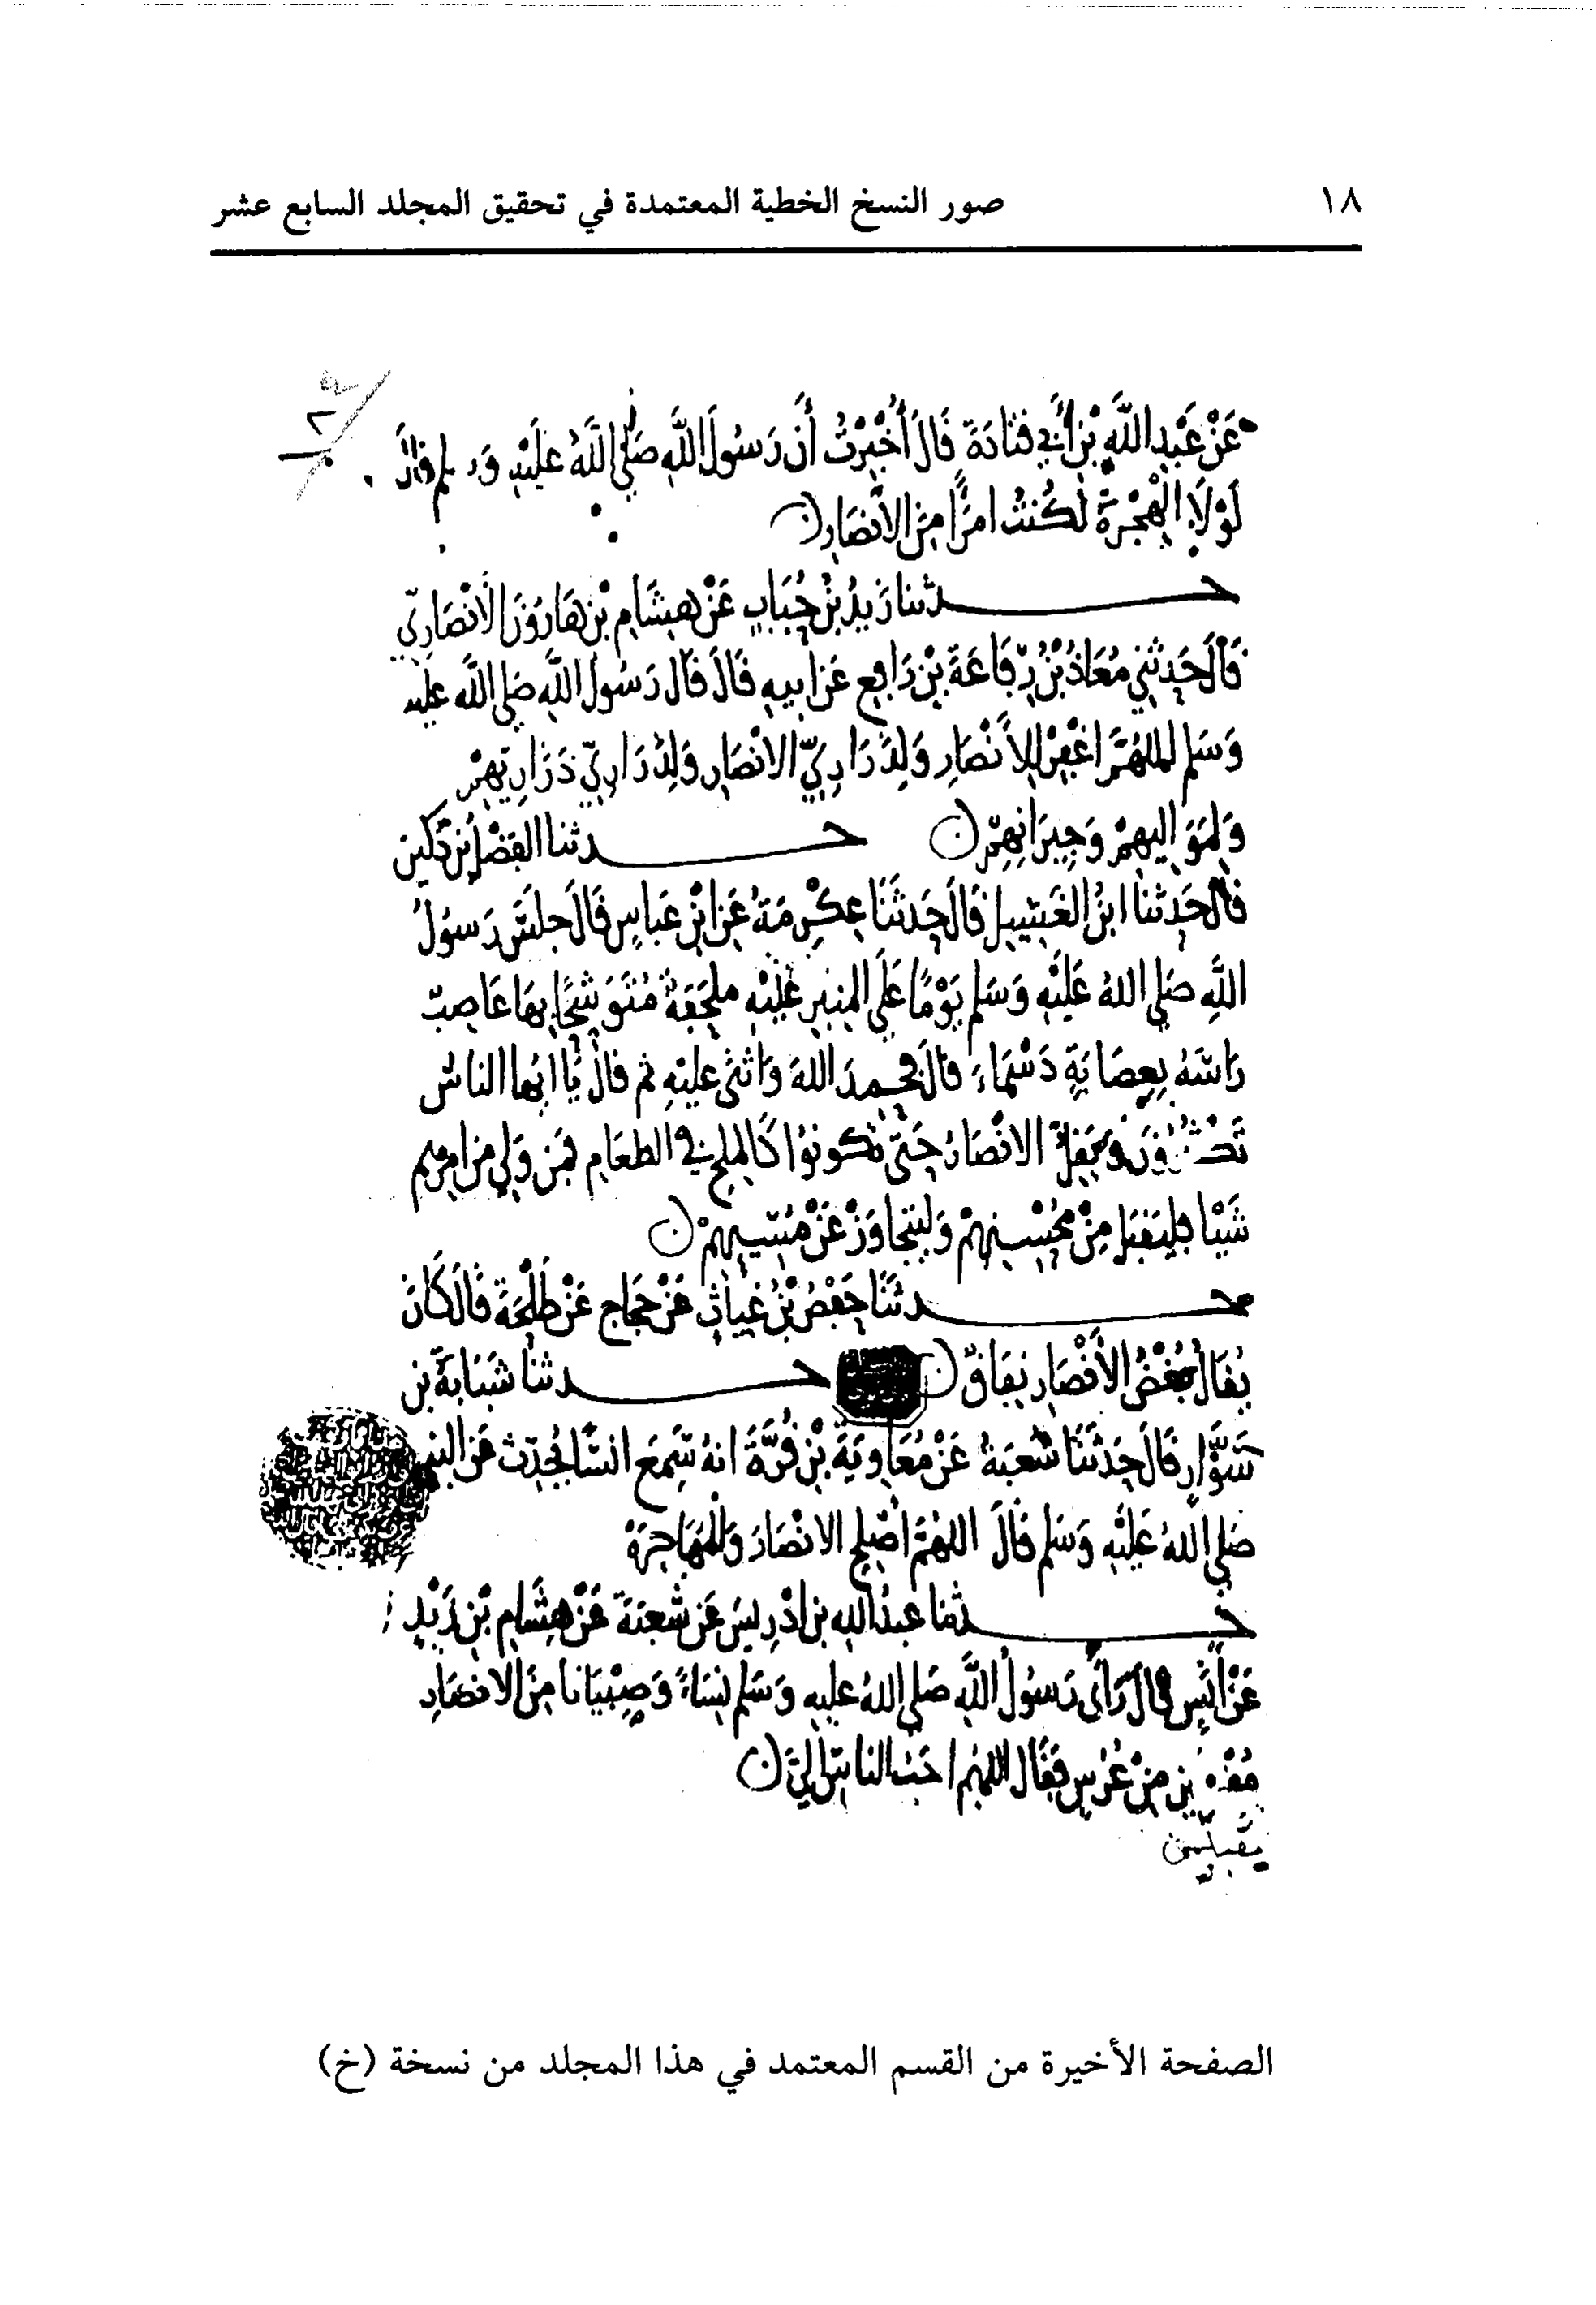 ١٨ صور النسخ الخطية المعتمدة في تحقيق المجلد السابع عشر
عَنْ عَبْدِ اللَّهِ بْنِ أَبِي قَتَادَةَ قَالَ أُخْبِرْتُ أَنَّ رَسُولَ اللَّهِ صَلَّى اللَّهُ عَلَيْهِ وَسلم قَالَ
لَوْلَا الْهِجْرَةُ لَكُنْتُ امْرَأً مِنَ الأَنْصَارِ
حدثنا زَيْدُ بْنُ حُبَابٍ عَنْ هِشَامِ بْنِ هَارُونَ الْأَنْصَارِيِّ
قَالَ حَدثَنِي مُعَاذُ بْنُ رِفَاعَةَ بْنِ رَافِعٍ عَنْ أَبِيهِ قَالَ قَالَ رَسُولُ اللَّهِ صَلى اللَّه عليه
وَسَلم اللهُمَّ اغْفِرْ لِلأَنْصَارِ وَلِذَرَارِيِّ الانْصَارِ وَلِذَرَارِيِّ ذَرَارِيهِمْ
وَلِمَوَاليهِمْ وَجِيرَانِهِمْ حدثنا الفَضْلُ بْنُ دُكَين
قَالَ حَدثنَا ابنُ الغَسِيلِ قَالَ حَدثَنَا عِكْرِمَةُ عَنِ ابْنِ عَباسٍ قَالَ جلسَ رَسُولُ
اللَّهِ صَلى اللهُ عَلَيْهِ وَسَلم يَوْمًا عَلَى المِنْبَرِ عَلَيْهِ مِلحَفَةٌ مُتَوَشِّحًا بِهَا عَاصِبٌ
رَاسَهُ بِعِصَابَةٍ دَسْمَاءَ قَالَ فحمدَ اللهَ وَاثنَى عليْهِ ثم قالَ يَا ايها الناسُ
تَكثُرُونَ وَيَقِلُّ الانْصَارُ حَتى تكونوُا كَالملحِ في الطعَامِ فمَن وَلِيَ من امرهم
شَيْئا فليَقبَل مِنْ مُحْسِنِهِمْ وَليتجاوَزْ عَنْ مُسِيئهِمْ
حدثَنَا حَفْصُ بْنُ غِيَاثٍ عَنْ حَجاجٍ عَنْ طَلْحَةَ قَالَ كَانَ
يُقَالُ بُغْضُ الأَنْصَارِ نِفَاقٌ حدثنا شَبَابَةُ بن
سَوَّارٍ قَالَ حَدثَنَا شُعْبَةُ عَنْ مُعَاوِيَةَ بْنِ قُرَّةَ انهُ سَمِعَ انسًا يُحَدِّث عَنِ النبي
صَلى اللهُ عَلَيْهِ وَسَلم قَالَ اللهُمَّ اصْلِحِ الانْصَارَ وَالْمُهَاجِرَةَ
حدثنا عبدُ الله بن ادْرِيسَ عَن شُعبَةَ عَنْ هِشَامِ بْنِ زَيْدٍ
عَنْ أَنَسٍ قَالَ رَأَى رَسُولُ اللَّهِ صَلى اللهُ عليهِ وَسَلم نِسَاءً وَصِبْيَانا مِنَ الانصَارِ
مِنْ عُرْسٍ فَقَالَ اللهُم احَبُّ الناسِ إِلَيَّ
الصفحة الأخيرة من القسم المعتمد في هذا المجلد من نسخة (خ)